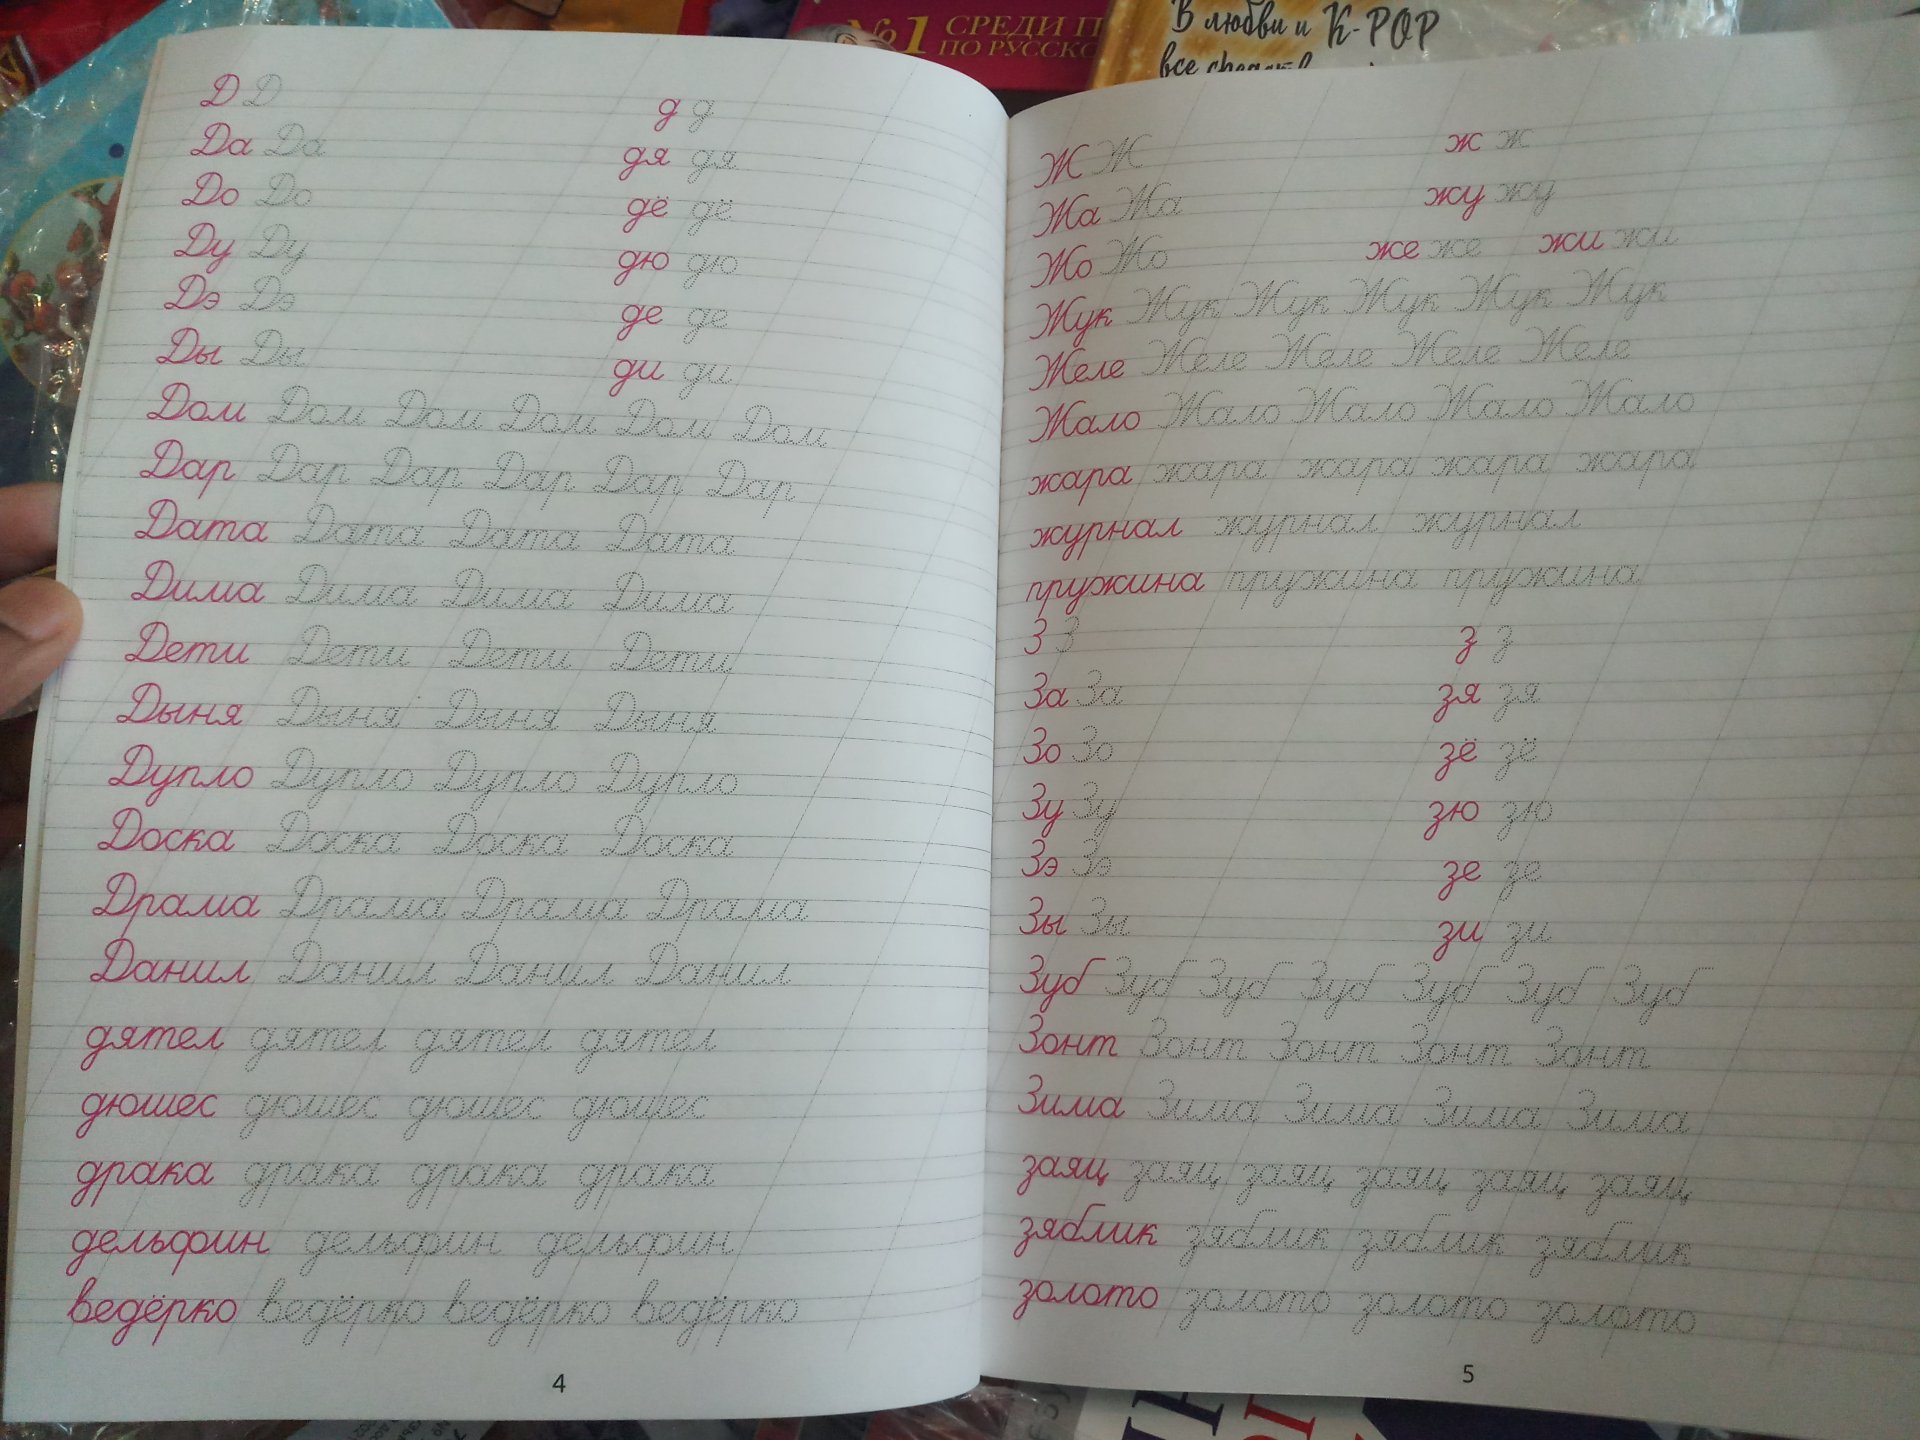 №1 СРЕДИ П
ПО РУССКО
В любви и K-POP
все
Д Д д д
Да Да дя дя
До До дё дё
Ду Ду дю дю
Дэ Дэ де де
Ды Ды ди ди
Дом Дом Дом Дом Дом Дом
Дар Дар Дар Дар Дар Дар
Дата Дата Дата Дата
Дима Дима Дима Дима
Дети Дети Дети Дети
Дыня Дыня Дыня Дыня
Дупло Дупло Дупло Дупло
Доска Доска Доска Доска
Драма Драма Драма Драма
Данил Данил Данил Данил
дятел дятел дятел дятел
дюшес дюшес дюшес дюшес
драка драка драка драка
дельфин дельфин дельфин
ведёрко ведёрко ведёрко ведёрко
4
Ж Ж ж ж
Жа Жа жу жу
Жо Жо же же жи жи
Жук Жук Жук Жук Жук Жук
Желе Желе Желе Желе Желе
Жало Жало Жало Жало Жало
жара жара жара жара жара
журнал журнал журнал
пружина пружина пружина
З З з з
За За зя зя
Зо Зо зё зё
Зу Зу зю зю
Зэ Зэ зе зе
Зы Зы зи зи
Зуб Зуб Зуб Зуб Зуб Зуб Зуб
Зонт Зонт Зонт Зонт Зонт
Зима Зима Зима Зима Зима
заяц заяц заяц заяц заяц заяц
зяблик зяблик зяблик зяблик
золото золото золото золото
5